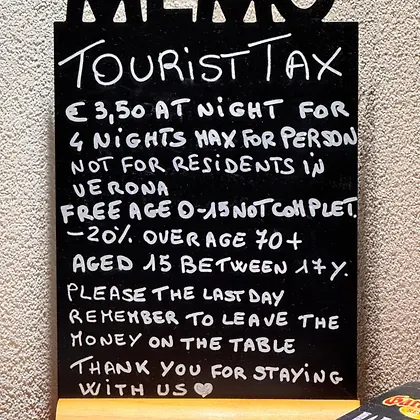 MEMO
TOURIST TAX
€ 3,50 AT NIGHT FOR
4 NIGHTS MAX FOR PERSON
NOT FOR RESIDENTS IN
VERONA
FREE AGE 0-15 NOT COMPLET.
-20% OVER AGE 70+
AGED 15 BETWEEN 17 Y.
PLEASE THE LAST DAY
REMEMBER TO LEAVE THE
MONEY ON THE TABLE
THANK YOU FOR STAYING
WITH US ♡